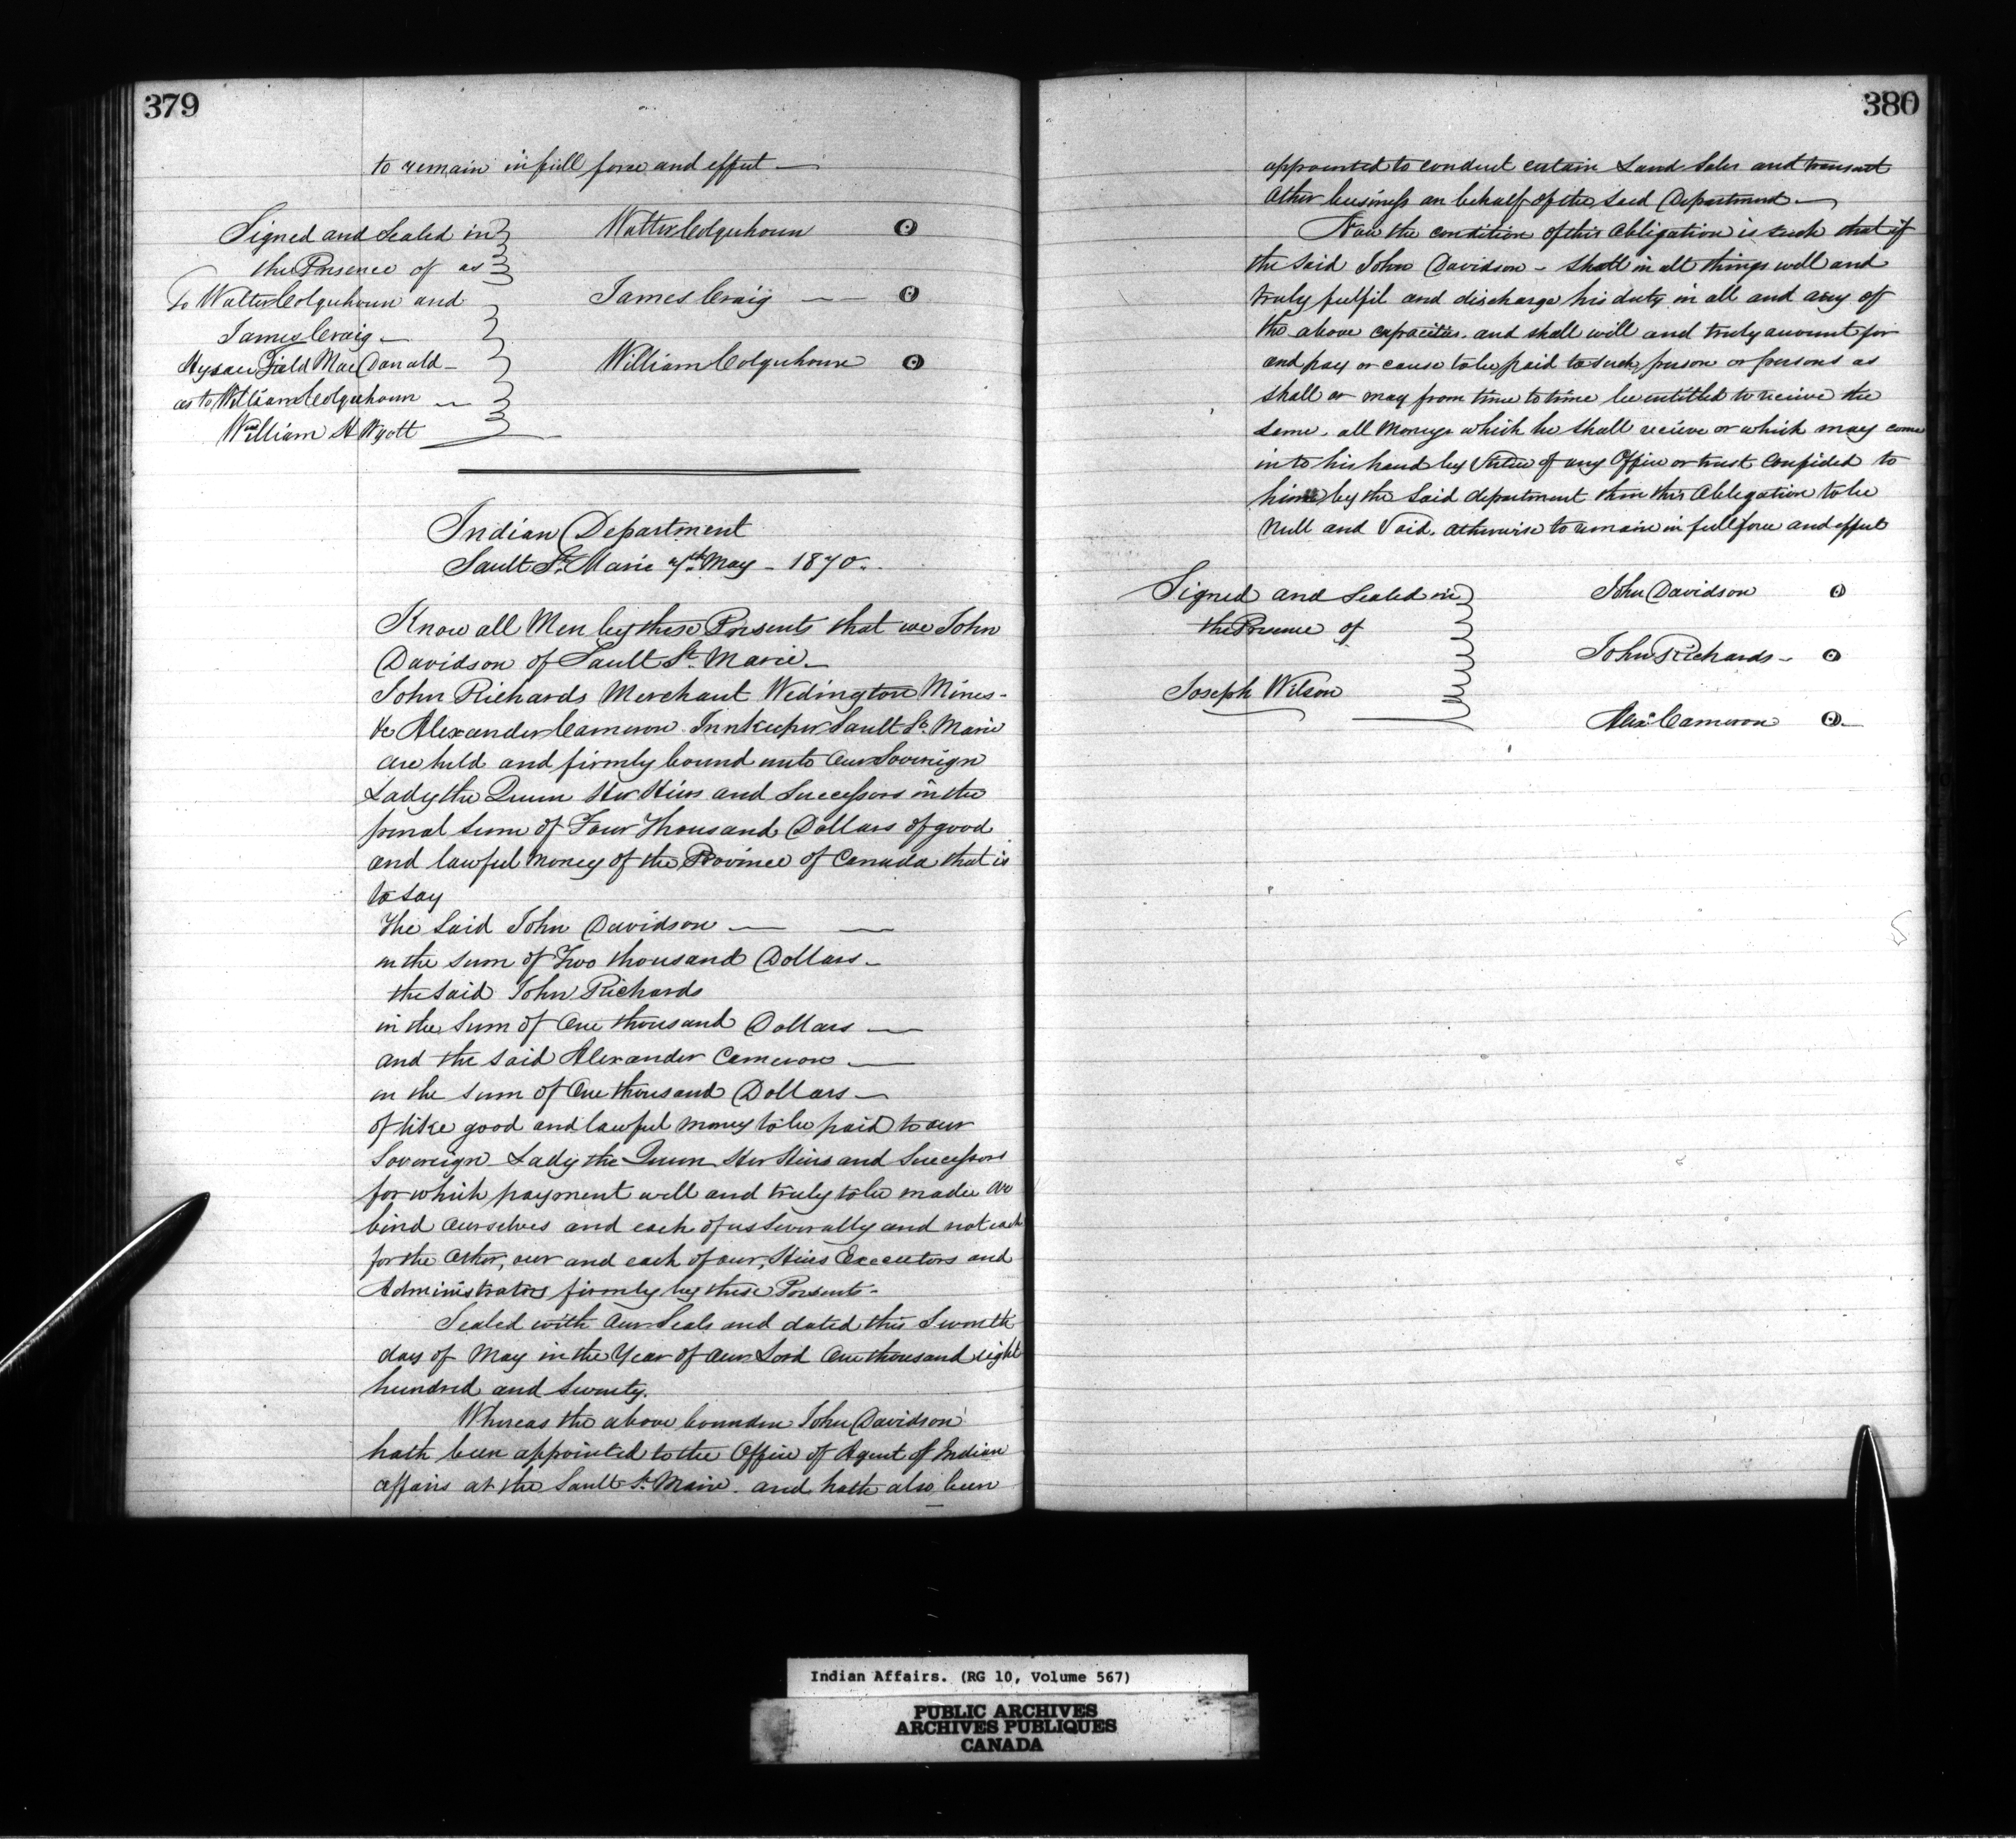 379
to remain in full force and effect —
Signed and Sealed in
the Presence of as
To Walter Colquhoun and
James Craig —
Field MacDonald —
as to William Colquhoun —
William H Wyatt
Walter Colquhoun
James Craig — —
William Colquhoun
Indian Department
Sault St. Marie 7th May - 1870.
Know all Men by these Presents that we John
Davidson of Sault St. Marie —
John Richards Merchant Wedington Mines -
& Alexander Cameron Innkeeper Sault St. Marie
are held and firmly bound unto Our Sovereign
Lady the Queen Her Heirs and Successors in the
penal sum of Four Thousand Dollars of good
and lawful money of the Province of Canada that is
to say
The Said John Davidson — —
in the sum of Two thousand Dollars —
the said John Richards
in the Sum of One thousand Dollars —
and the said Alexander Cameron —
in the sum of One thousand Dollars —
of like good and lawful money to be paid to our
Sovereign Lady the Queen Her Heirs and Successors
for which payment well and truly to be made We
bind Ourselves and each of us Severally and not each
for the Other, our and each of our, Heirs Executors and
Administrators firmly by these Presents -
Sealed with Our Seals and dated this Seventh
day of May in the Year of Our Lord One thousand eight
hundred and Seventy.
Whereas the above bounden John Davidson
hath been appointed to the Office of Agent of Indian
affairs at the Sault St. Marie. and hath also been
380
appointed to conduct certain Land Sales and transact
Other business on behalf of the said Department —
Now the condition of this Obligation is such that if
the said John Davidson - Shall in all things well and
truly fulfil and discharge his duty in all and any of
the above capacities. and shall will and truly account for
and pay or cause to be paid to such person or persons as
shall or may from time to time be entitled to receive the
same. all Moneys which he Shall recieve or which may come
into his hand by Virtue of any Office or trust Confided to
him by the Said department then this Obligation to be
Null and Void. Otherwise to remain in full force and effect
Signed and Sealed in
the Presence of
Joseph Wilson
John Davidson
John Richards -
Alexr Cameron
Indian Affairs. (RG 10, Volume 567)
PUBLIC ARCHIVES
ARCHIVES PUBLIQUES
CANADA